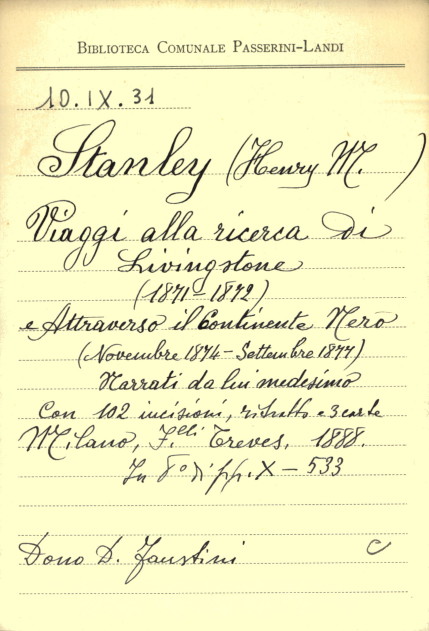 BIBLIOTECA COMUNALE PASSERINI-LANDI
10.IX.31
Stanley (Henry M. )
Viaggi alla ricerca di
Livingstone
(1871-1872)
e Attraverso il Continente Nero
(Novembre 1874 - Settembre 1877)
Narrati da lui medesimo
Con 102 incisioni, ritratto e 3 carte
Milano, F.lli Treves, 1888.
In 8° di pp. X - 533
Dono D. Faustini C